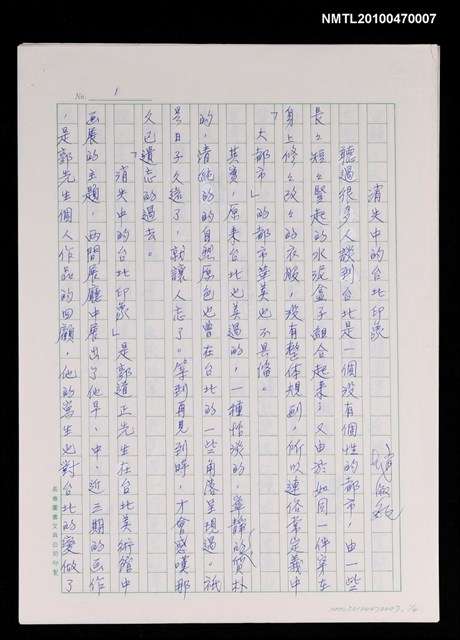 NMTL20100470007
No. 1
消失中的台北印象
聽過很多人談到台北是一個沒有個性的都市，由一些
長長短短豎起的水泥盒子組合起來，又由於如同一件穿在
身上修修改改的衣服，沒有整体規劃，所以連俗常定義中
「大都市」的都市華美也不具備。
其實，原來台北也美過的，一種恬淡的，寧靜的質朴
的，清純的的自然原色也曾在台北的一些角落呈現過。祇
是日子久遠了，就讓人忘了。等到再見到時，才會感嘆那
久已遺忘的過去。
「消失中的台北印象」是郭道正先生在台北美術館中
画展的主題，兩間展廳中展出了他早、中、近三期的画作
，是郭先生個人作品的回顧，他的寫生也對台北的變做了
長春圖書文具公司印製
NMTL20100470007, 1/6